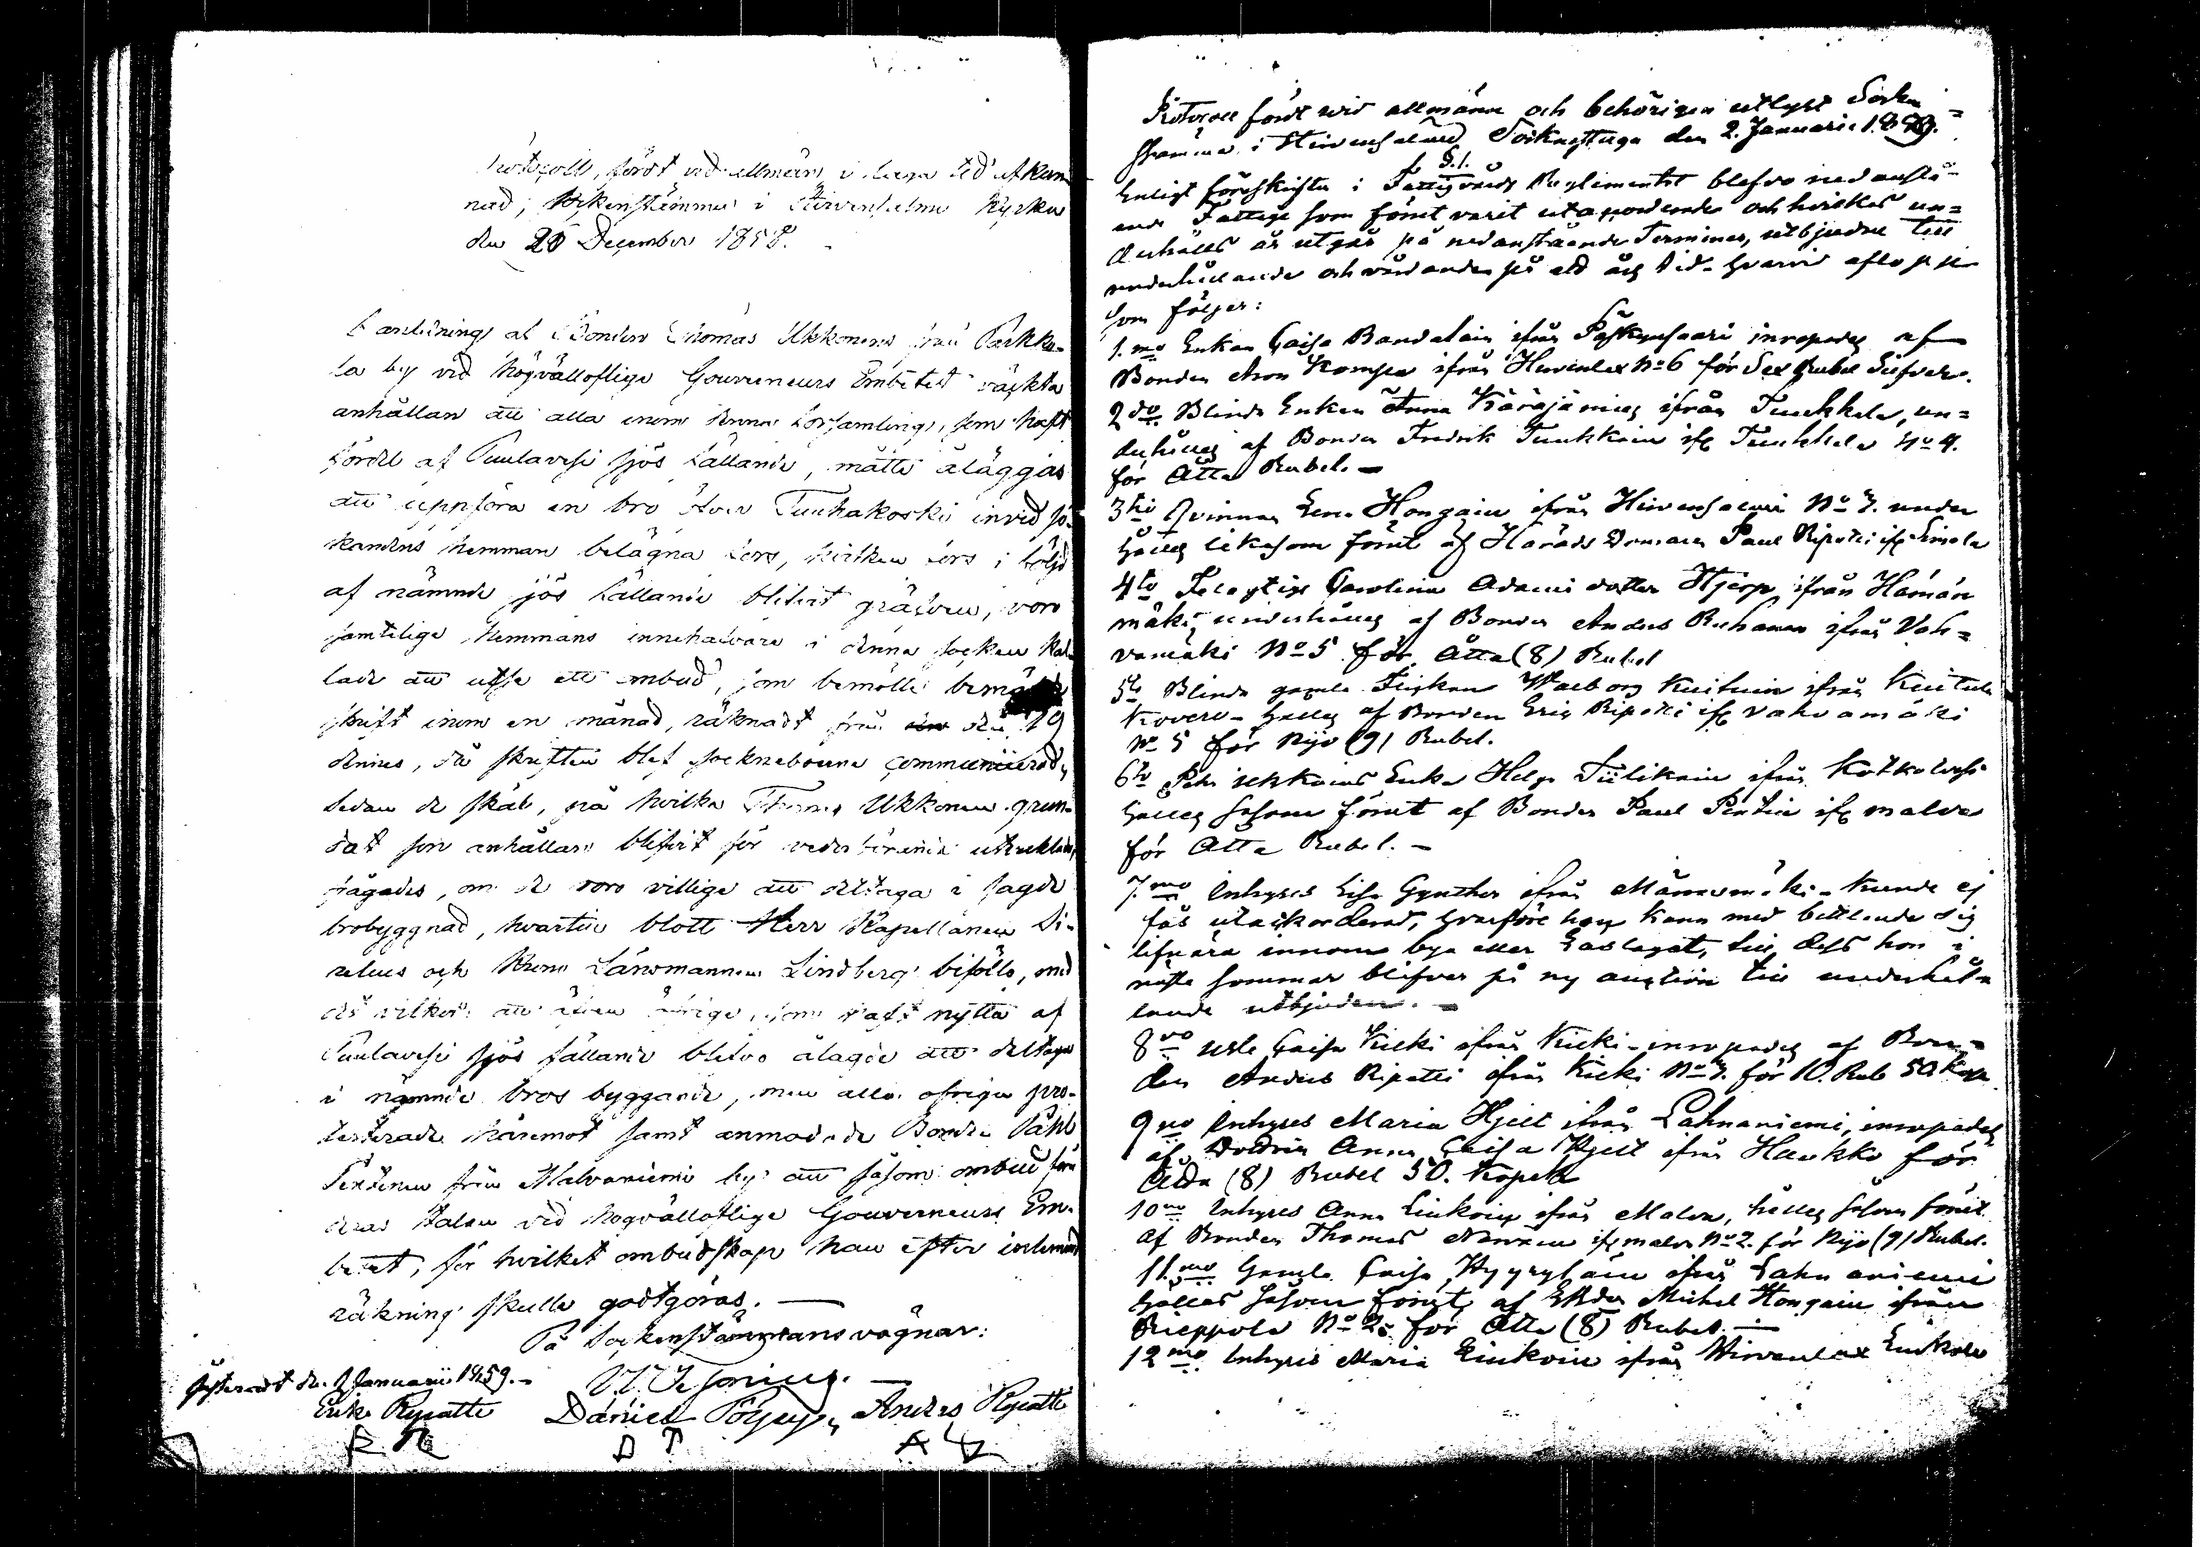 Protocoll, fördt vid allmän, i laga tid utkun-
nad, Sockenstämma i Hirvensalmi Kyrka
den 26 December 1858.
I anledning af Bonden Thomas Ukkonens från Parkka-
la by vid Högvällofliga Gouverneurs Embetet väckta
anhållan att alla inom denna församling, som haft
fördel af Puulavesi sjös fällande, måtte åläggas
att uppföra en bro öfver Tuuhakoski invid sö-
kandens hemman belägna fors, hvilken fors i följd
af nämnde sjös fällande blifvit gräfven, voro
samtelige hemmans innehafvare i denna socken kal-
lade att utse ett ombud, som bemölle bemälte
skrift inom en månad, räknadt från den 19
dennes, då skriften blef sockneboerne communicerad,
Sedan de skäl, på hvilka Thomas Ukkonen grun-
dat sin anhållan blifvit för vederbörande utvecklade,
frågades, om de voro villige att deltaga i sagde
brobyggnad, hvartill blott Herr Kapellanen Si-
relius och Krono Länsmannen Lindberg biföllo, med
det vilkor att äfven öfrige, som haft nytta af
Puulavesi sjös fällande blefvo ålagde att deltaga
i nämnde bros byggande, men alla öfriga pro-
testerade häremot samt anmodade Bonden Påhl
Pentinen från Malvaniemi by att såsom ombud föra
deras talan vid Högvällofliga Gouverneurs Em-
betet, för hvilket ombudskap han efter inlemnad
räkning skulle godtgöras. —
På Sockenstämmans vägnar:
Justeradt den 2 Januarii 1859. –
Erik Ripatti Daniel Anders Ripatti
E. R. D T A
Protocoll fördt vid allmänna och behörigen utlyst Socken-
stämma i Hirvensalmi Sockenstuga den 2. Januarii 1859.
§.1.
Enligt föreskrifter i Fattigvårds Reglementet blefvo nedanstå-
ende Fattige som förut varit utaccorderade och hvilkas un-
derhåll är utgått på nedanstående Terminer, utbjudne till
underhållande och vårdande på ett års tid. hvarvid aflopp
som följer:
1.mo Enkan Caisa Bandolin ifrån Pyökynsaari inropades af
Bonden Aron Kampa ifrån Hirvenlax No 6 för Sex Rubel Silfver.
2do Blinda Enkan Anna Käräjämies ifrån Tuukkala, un-
derhålles af Bonden Fredrik Tuukkain if. Tuukkala No 4.
för Åtta Rubel. —
3tio Qvinnan Lena Hongain ifrån Hirvensalmi No 7. under
hålles likasom förut af Härads Domaren Paul Ripatti if.
4to Felaktiga Carolina Adami dotter Hjerp ifrån Hämän
mäki, underhålles af Bonden Anders Ruhanen ifrån Vah-
vamäki No 5 för Åtta (8) Rubel
5to Blinda gamla Flickan Walborg Kuituin ifrån Kuitula
Kovero - hålles af Bonden Eric Ripatti if. Vahvamäki
No 5 för Nijo (9) Rubel.
6to Enka Helga Tiilikain ifrån Kotkatvesi
hålles såsom förut af Bonden Paul Pentin if. Malva
för Åtta Rubel. –
7.mo Inhyses Lisa Gynther ifrån Männömäki - kunde ej
fås utackorderad, hvarföre hon kann med bettlande sig
lifnära innom bya eller Gaslaget, till dess hon i
nästa sommar blifver på ny auction till underhål-
lande utbjuden. –
8vo Caisa Kicki ifrån Kicki - inropades af Bon-
den Anders Ripatti ifrån Kicki No 7. för 10. Rub 50 Kop
9no Inhyses Maria Hjelt ifrån Lahnaniemi, inropades
af Dottren Anna Caisa Hjelt ifrån Haukko för
Åtta (8) Rubel 50. Kopek
10mo Inhyses Anna Liukoin ifrån Malva, hålles såsom förut
af Bonden Thomas if. Malva No 2. för Nijo (9) Rubel.
11.mo Gamla Caisa Hyyryläin ifrån Lahnaniemi
hålles såsom förut, af Michel Hongain ifrån
Rieppola No 2. för Åtta (8) Rubel. —
12mo Inhyses Maria Liukoin ifrån Hirvenlax Liukola